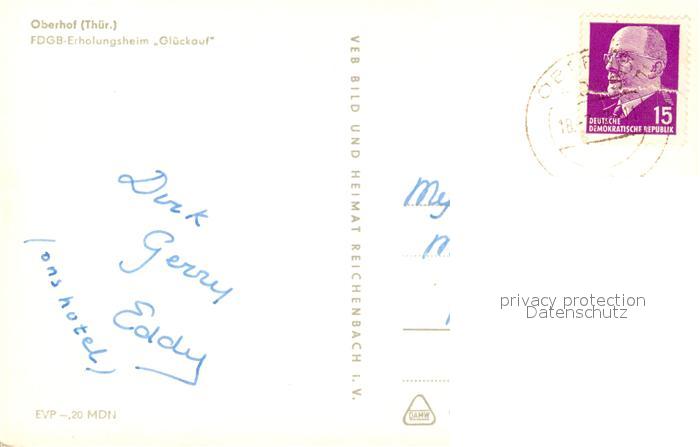 Oberhof (Thür.)
FDGB-Erholungsheim „Glückauf"
VEB BILD UND HEIMAT REICHENBACH i. V.
15
DEUTSCHE
DEMOKRATISCHE REPUBLIK
18.
Dirk
Gerry
Eddy
(ons hotel)
privacy protection
Datenschutz
EVP –,20 MDN
DAMW